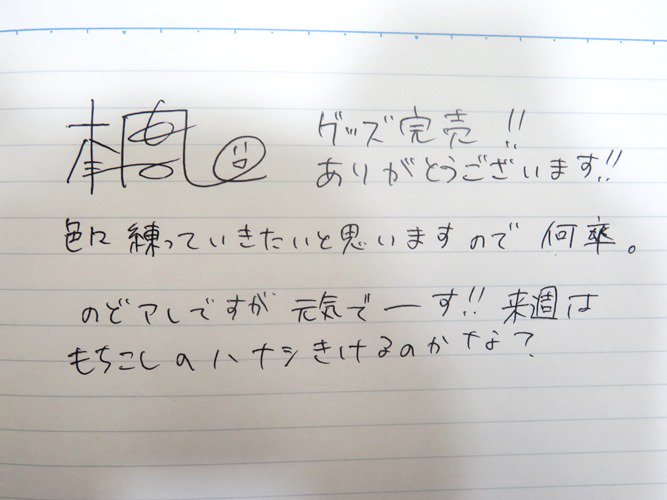 グッズ完売!!
ありがとうございます!!
色々練っていきたいと思いますので 何卒。
のどアレですが 元気でーす!! 来週は
もちこしのハナシきけるのかなぁ?